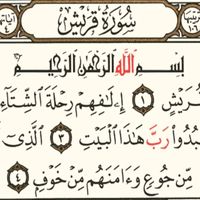 سُورَةُ قُرَيْشٍ
بِسْمِ اللَّهِ الرَّحْمَٰنِ الرَّحِيمِ
قُرَيْشٍ ١ إِۦلَٰفِهِمْ رِحْلَةَ الشِّتَآءِ
بُدُوا۟ رَبَّ هَٰذَا الْبَيْتِ ٣ الَّذِىٓ
مِّن جُوعٍ وَءَامَنَهُم مِّنْ خَوْفٍ ٤